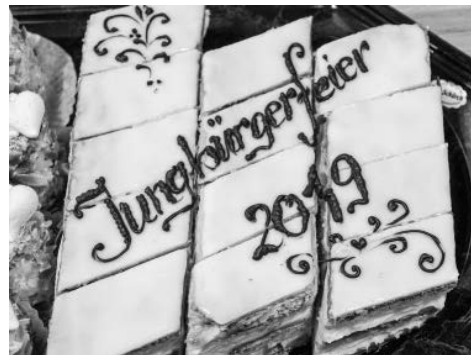 Jungbürgerfeier
2019